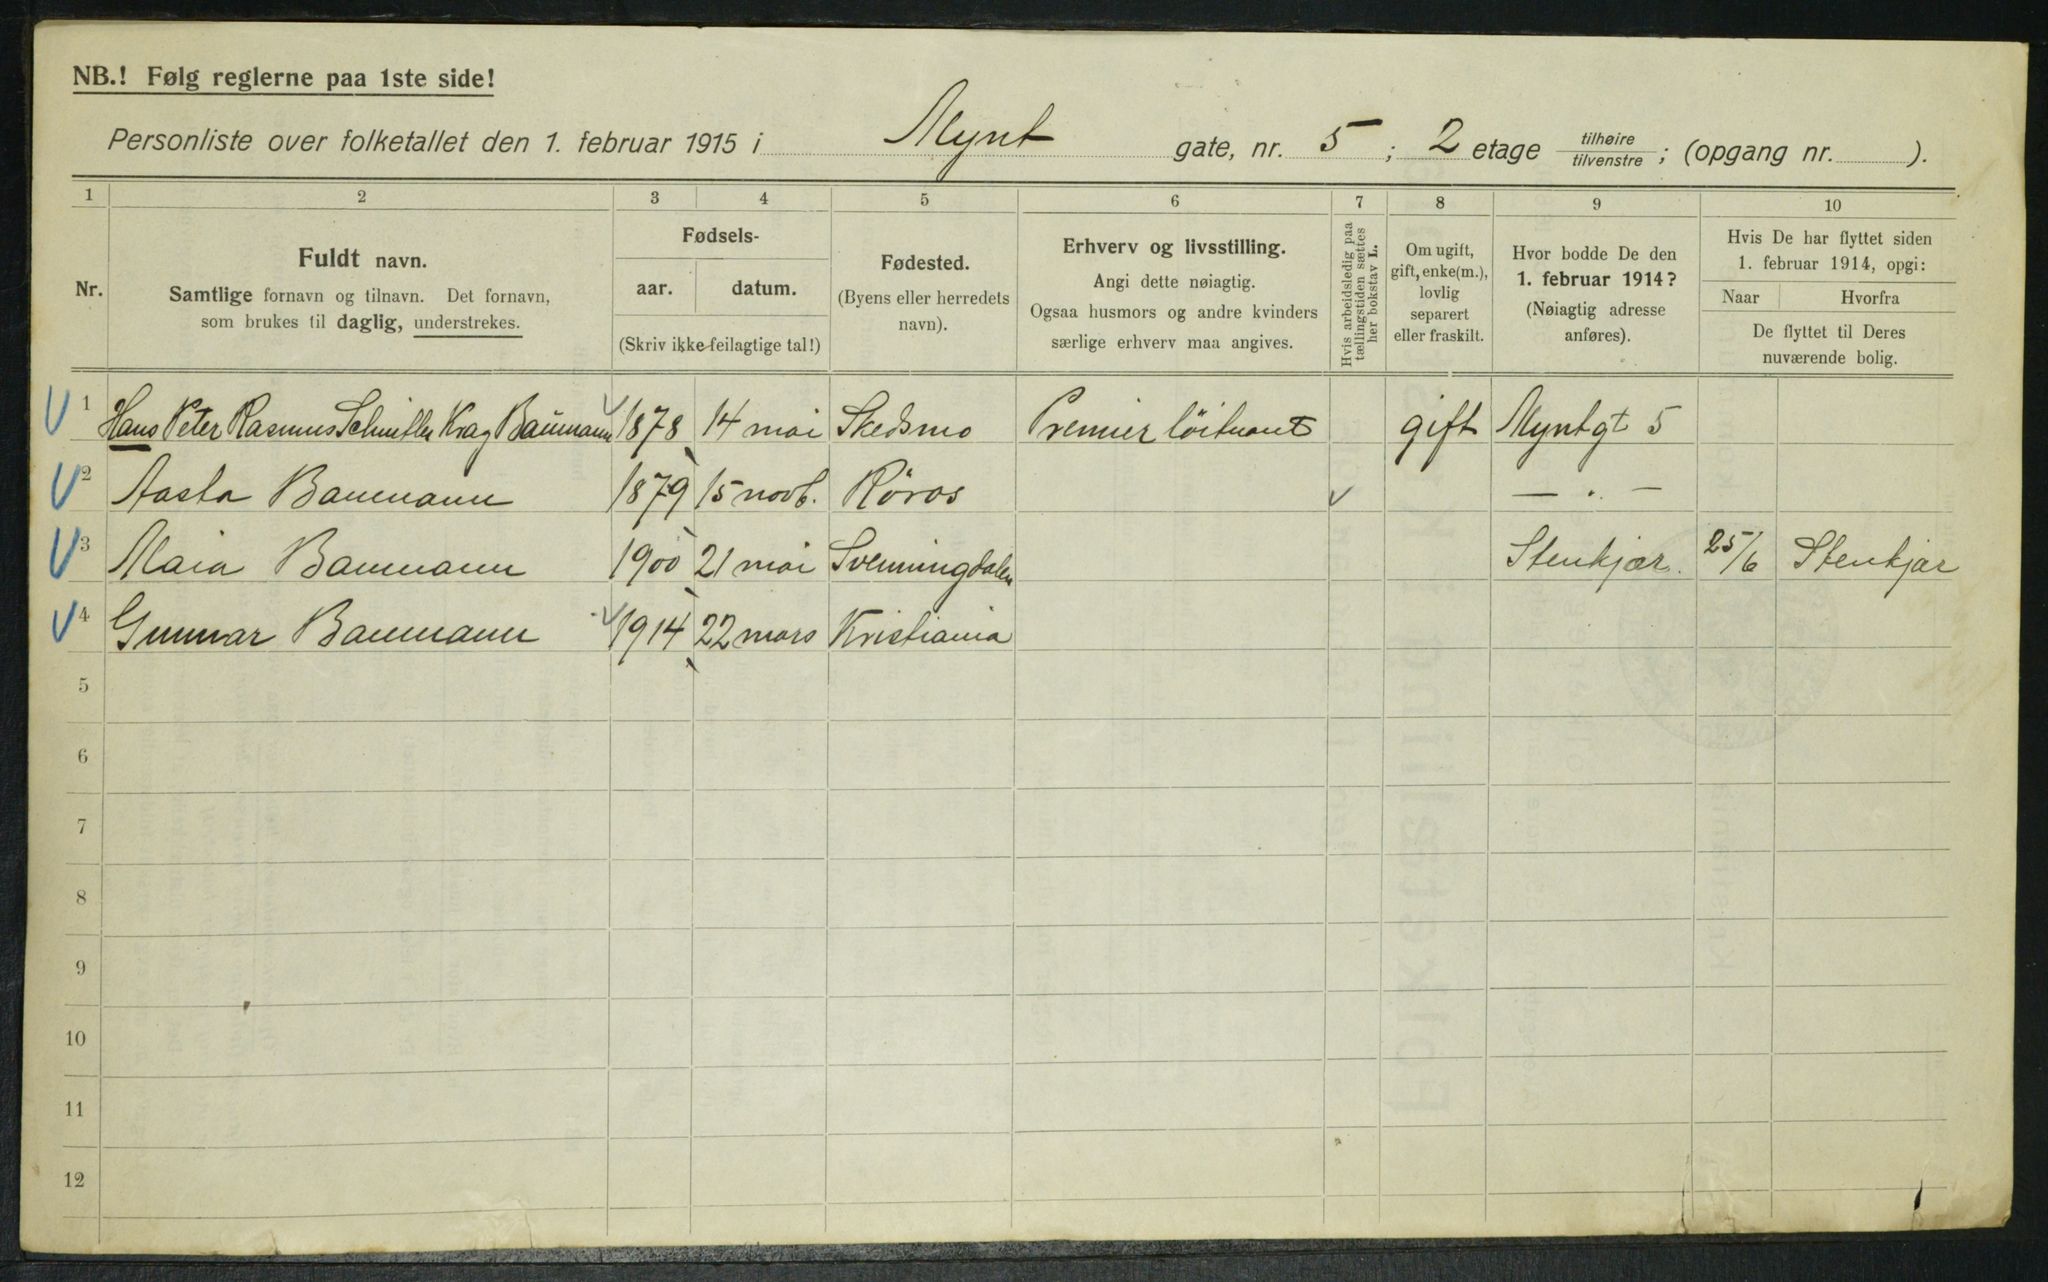 NB.! Følg reglerne paa 1ste side!
Personliste over folketallet den 1. februar 1915 i Mynt gate, nr. 5 ; 2 etage tilhøire/tilvenstre ; (opgang nr. ).
1 2 3 4 5 6 7 8 9 10
Nr.
Fuldt navn.
Samtlige fornavn og tilnavn. Det fornavn,
som brukes til daglig, understrekes.
Fødsels-
aar. datum.
(Skriv ikke feilagtige tal!)
Fødested.
(Byens eller herredets
navn).
Erhverv og livsstilling.
Angi dette nøiagtig.
Ogsaa husmors og andre kvinders
særlige erhverv maa angives.
Hvis arbeidsledig paa
tællingstiden sættes
her bokstav L.
Om ugift,
gift, enke(m.),
lovlig
separert
eller fraskilt.
Hvor bodde De den
1. februar 1914?
(Nøiagtig adresse
anføres).
Hvis De har flyttet siden
1. februar 1914, opgi:
Naar Hvorfra
De flyttet til Deres
nuværende bolig.
1 Hans Peter Rasmus Schnitler Krag Baumann 1878 14 mai Skedsmo Premier løitnant gift Myntgt 5
2 Aasta Baumann 1879 15 novb. Røros — " —
3 Maia Baumann 1900 21 mai Svenningdalen Stenkjær. 25/6 Stenkjær
4 Gunnar Baumann 1914 22 mars Kristiania
5
6
7
8
9
10
11
12